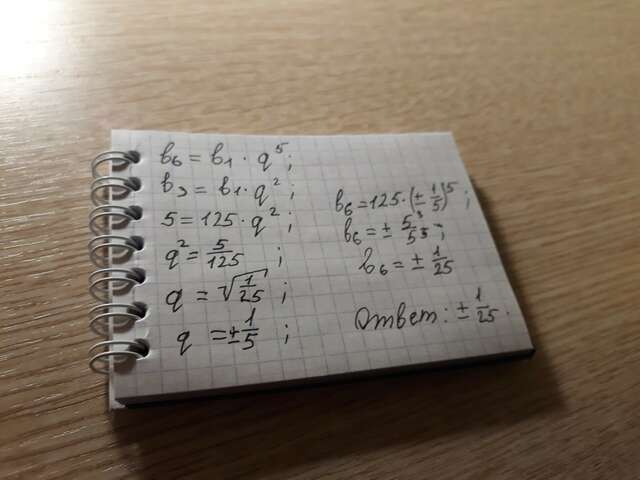 b₆ = b₁ · q⁵;
b₃ = b₁ · q²;
5 = 125 · q²;
q² = 5/125 ;
q = √(1/25) ;
q = ± 1/5 ;
b₆ = 125 · (± 1/5)⁵ ;
b₆ = ± 5³/5⁵ ;
b₆ = ± 1/25
Ответ: ± 1/25.